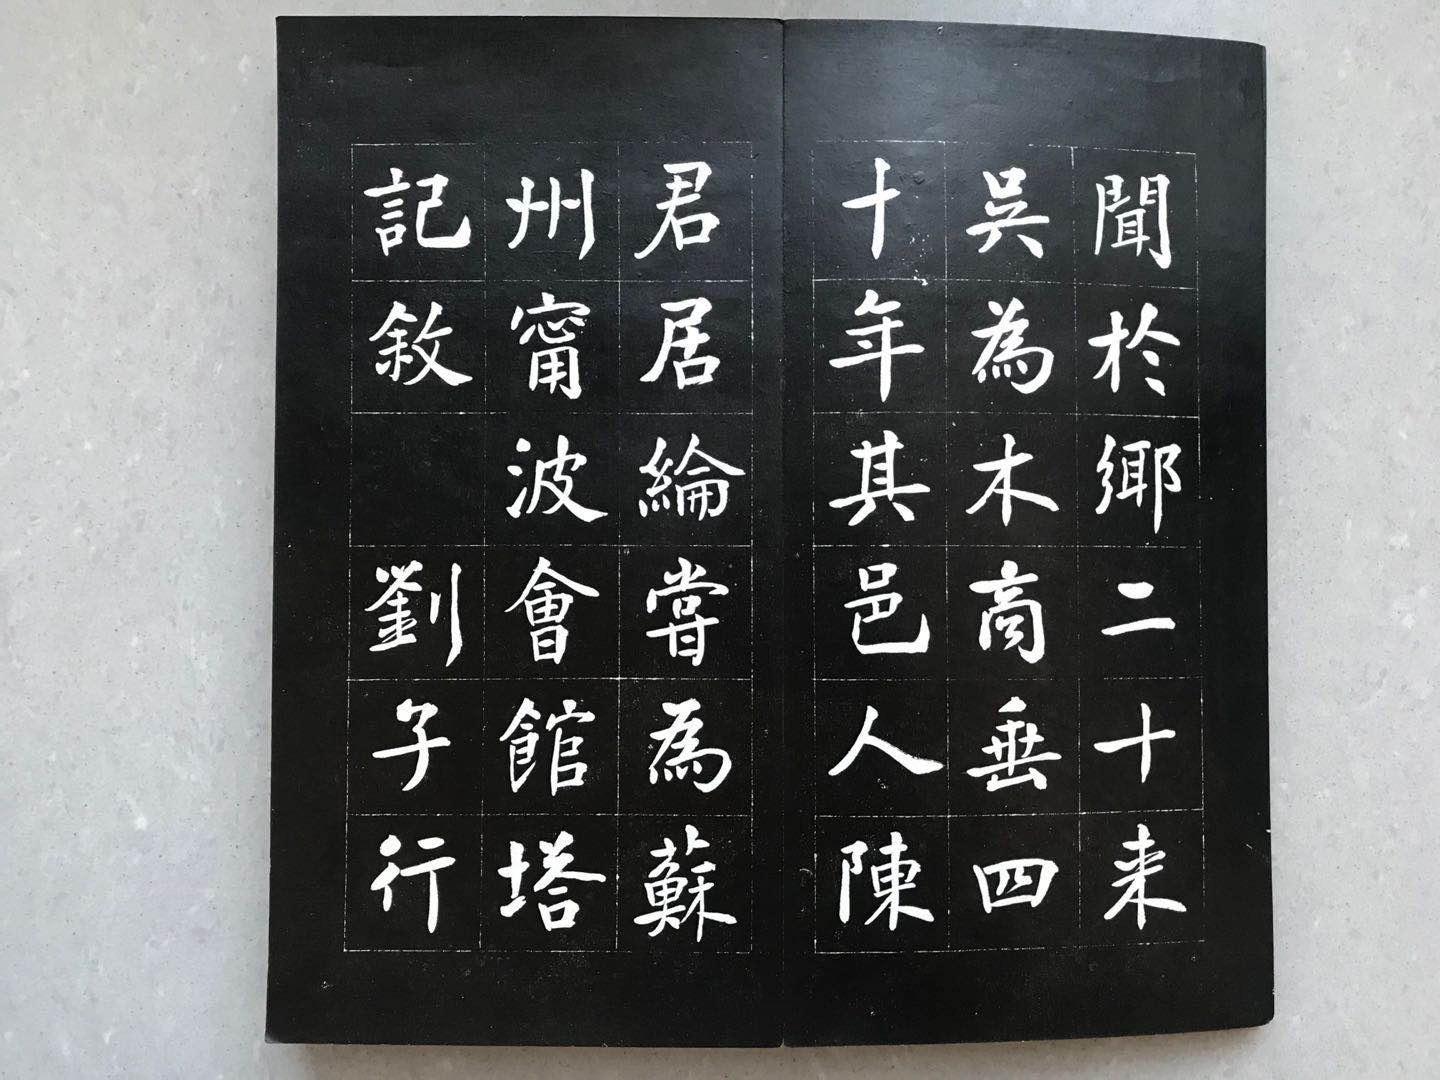 聞於鄉二十来
吳為木商垂四
十年其邑人陳
君居綸嘗為蘇
州甯波會館塔
記敘 劉子行